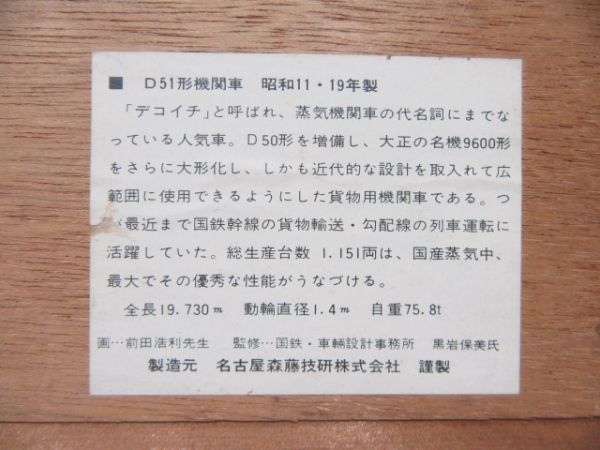 ■ D51形機関車 昭和11・19年製
「デコイチ」と呼ばれ、蒸気機関車の代名詞にまでな
っている人気車。D50形を増備し、大正の名機9600形
をさらに大形化し、しかも近代的な設計を取入れて広
範囲に使用できるようにした貨物用機関車である。つ
が最近まで国鉄幹線の貨物輸送・勾配線の列車運転に
活躍していた。総生産台数 1.151両は、国産蒸気中、
最大でその優秀な性能がうなづける。
全長19.730m 動輪直径1.4m 自重75.8t
画…前田浩利先生 監修…国鉄・車輛設計事務所 黒岩保美氏
製造元 名古屋森藤技研株式会社 謹製